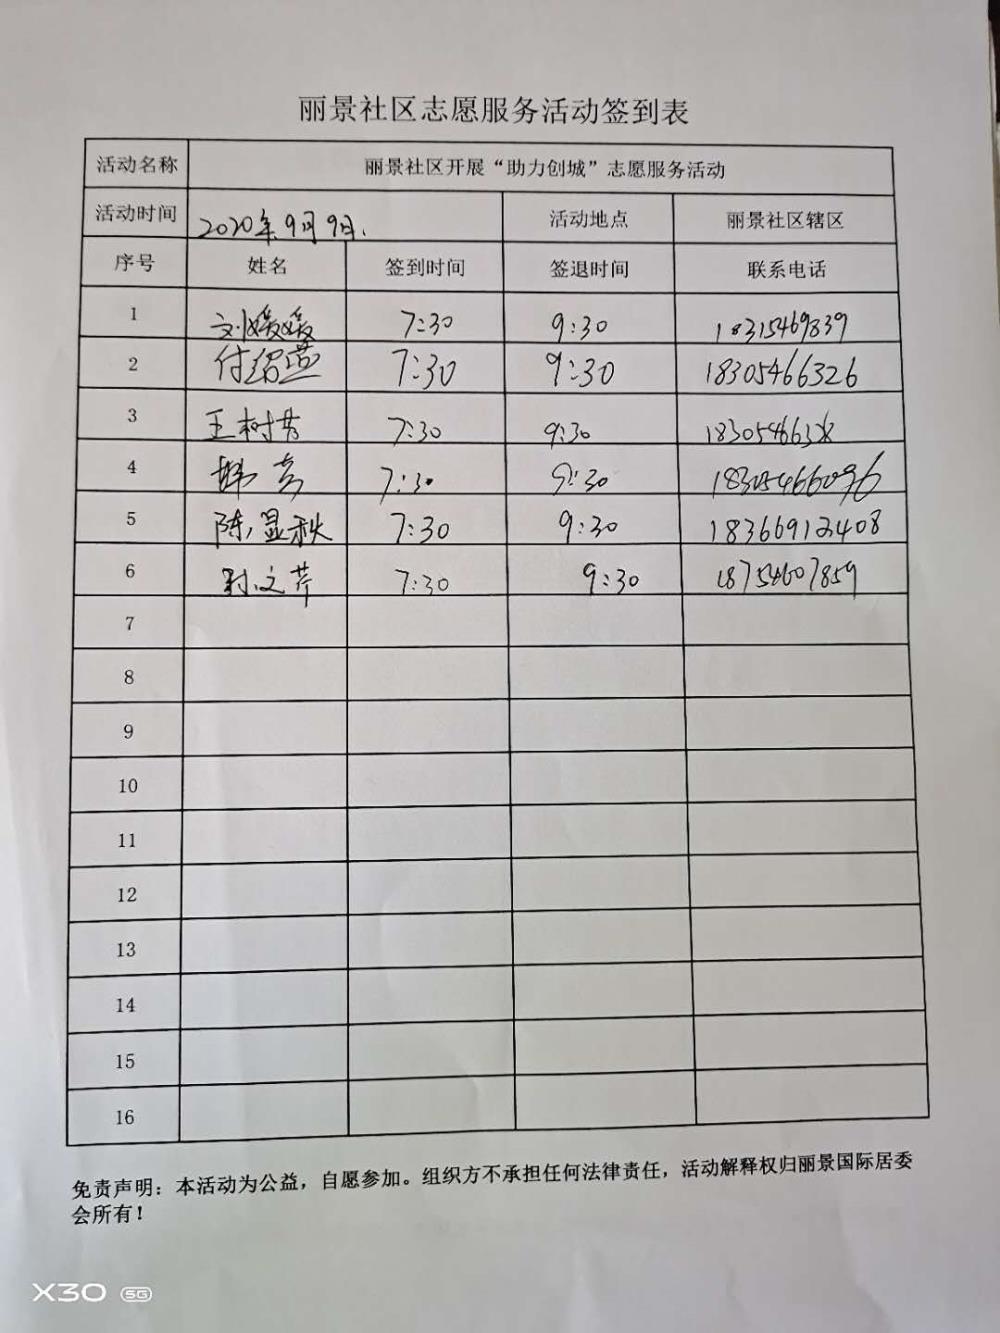 丽景社区志愿服务活动签到表
活动名称 丽景社区开展“助力创城”志愿服务活动
活动时间 2020年9月9日. 活动地点 丽景社区辖区
序号 姓名 签到时间 签退时间 联系电话
1 刘媛媛 7:30 9:30 18315469839
2 付绍燕 7:30 9:30 18305466326
3 王树芳 7:30 9:30
4 韩芳 7:30 9:30 18305466096
5 陈显秋 7:30 9:30 18366912408
6 文芹 7:30 9:30 18754607859
7
8
9
10
11
12
13
14
15
16
免责声明：本活动为公益，自愿参加。组织方不承担任何法律责任，活动解释权归丽景国际居委
会所有！
X30 5G